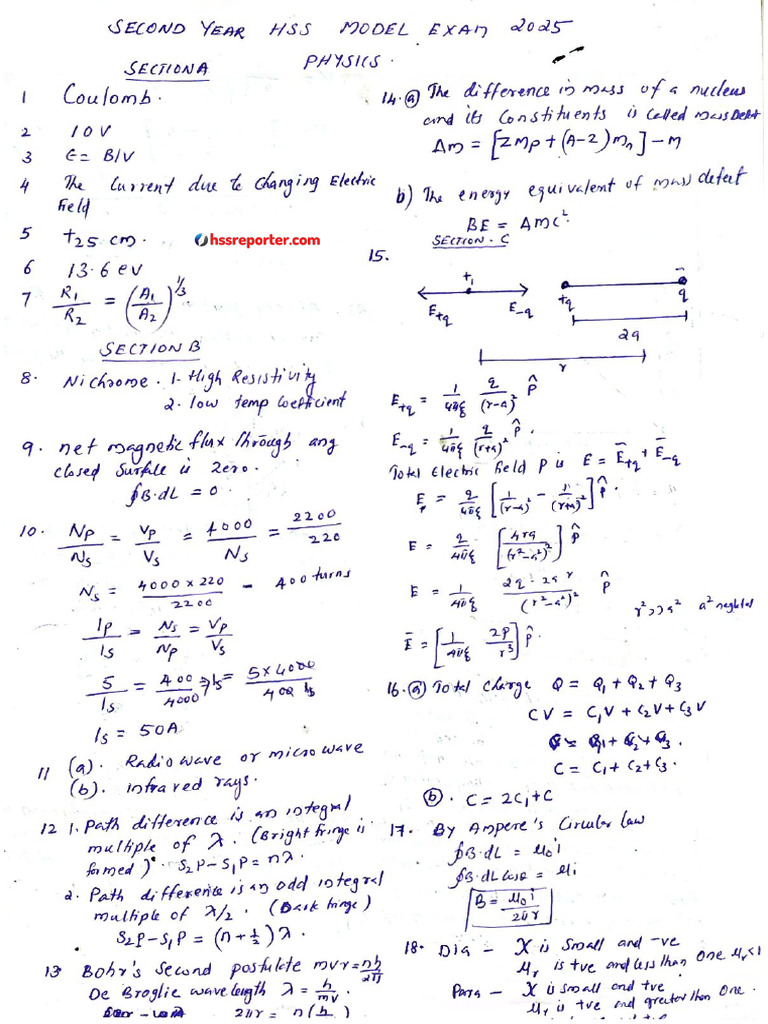 SECOND YEAR HSS MODEL EXAM 2025
PHYSICS.
SECTION A
1 Coulomb.
2 10V
3 C = B/V
4 The Current due to Changing Electric
Field
5 +25 cm.
hssreporter.com
6 13.6 ev
7 R1/R2 = (A1/A2)^1/3.
SECTION B
8. Nichrome. 1. High Resistivity
2. low temp Coefficient
9. net magnetic flux through any
closed Surface is Zero.
∮B.dL = 0.
10. Np/Ns = Vp/Vs = 4000/Ns = 2200/220
Ns = 4000 x 220/2200 - 400 turns
Ip/Is = Ns/Np = Vp/Vs
5/Is = 400/4000 Is = 5 x 4000/400
Is = 50A
11 (a). Radio wave or micro wave
(b). infrared rays.
12 1. Path difference is an integral
multiple of λ. (Bright fringe is
formed). S2P - S1P = nλ.
2. Path difference is an odd integral
multiple of λ/2. (Dark fringe)
S2P - S1P = (n + 1/2) λ.
13 Bohr's Second postulate mvr = nh/2π
De Broglie wavelength λ = h/mv
2πr = n(h/
14. (a) The difference in mass of a nucleus
and its Constituents is called mass Defect
Δm = [ZMp + (A-Z) mn] - M
b) The energy equivalent of mass defect
BE = Δmc²
SECTION. C
15.
+1
E+q E-q +q - q
2a
r
E+q = 1/4πε q/(r-a)² p̂
E-q = 1/4πε q/(r+a)² p̂.
Total Electric field P is E = E+q + E-q
Ep = q/4πε [1/(r-a)² - 1/(r+a)²] p̂.
E = q/4πε [4ra/(r²-a²)²] p̂
E = 1/4πε 2q · 2a r/(r²-a²)² p̂
r² >> a² a² neglted
E = [1/4πε 2p/r³] p̂.
16. (a) Total Charge Q = Q1 + Q2 + Q3
CV = C1V + C2V + C3V
C = C1 + C2 + C3.
(b). C = 2C1 + C
17. By Ampere's Circular Law
∮B.dL = μ0i
∮B.dL cosθ = μi
B = μ0i/2πr
18. Dia - X is Small and -ve
μr is +ve and less than One μr<1
Para - X is small and +ve
μr is +ve and greater than One.